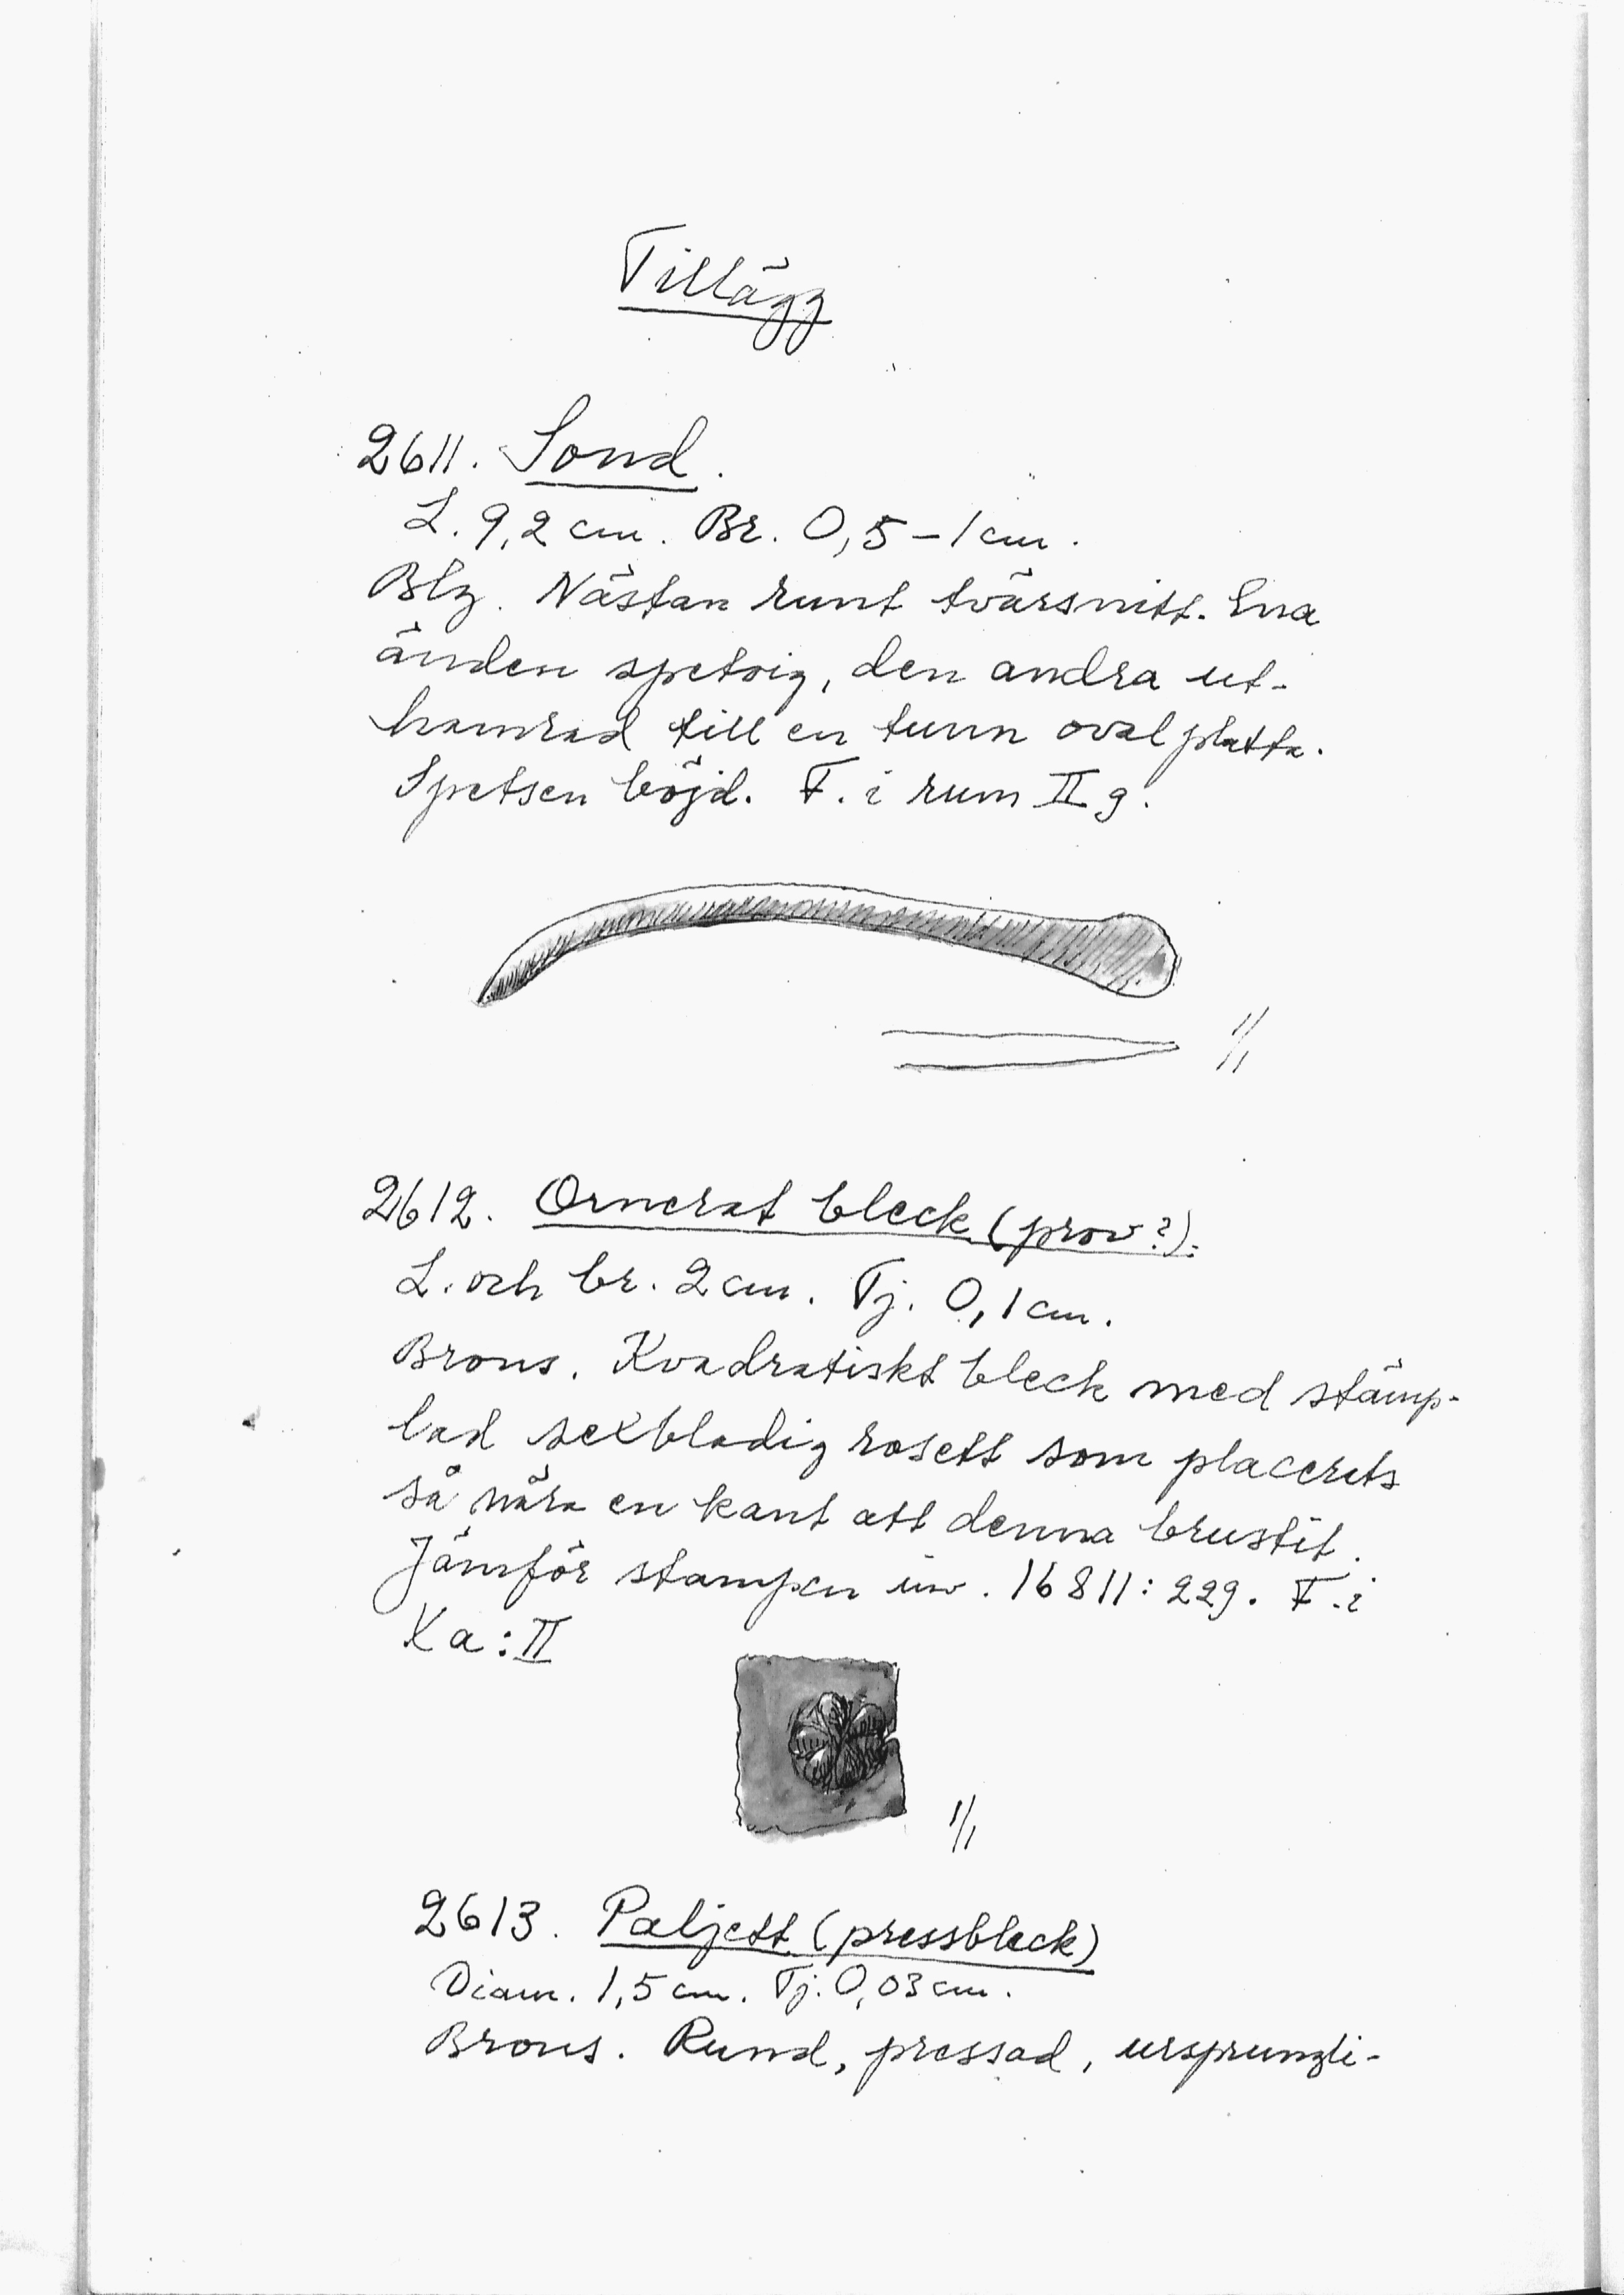 Tillägg
2611. Sond.
L. 9,2 cm. Br. 0,5–1 cm.
Blg. Nästan runt tvärsnitt. Ena
änden spetsig, den andra ut-
hamrad till en tunn oval platta.
Spetsen böjd. F. i rum II g.
1/1
2612. Ornerat bleck (prov?).
L. och br. 2 cm. Tj. 0,1 cm.
Brons. Kvadratiskt bleck med stämp-
lad sexbladig rosett som placerats
så nära en kant att denna brustit.
Jämför stampen inv. 16811:229. F. i
Xa:II
1/1
2613. Paljett (pressbleck)
Diam. 1,5 cm. Tj. 0,03 cm.
Brons. Rund, pressad, ursprungli-